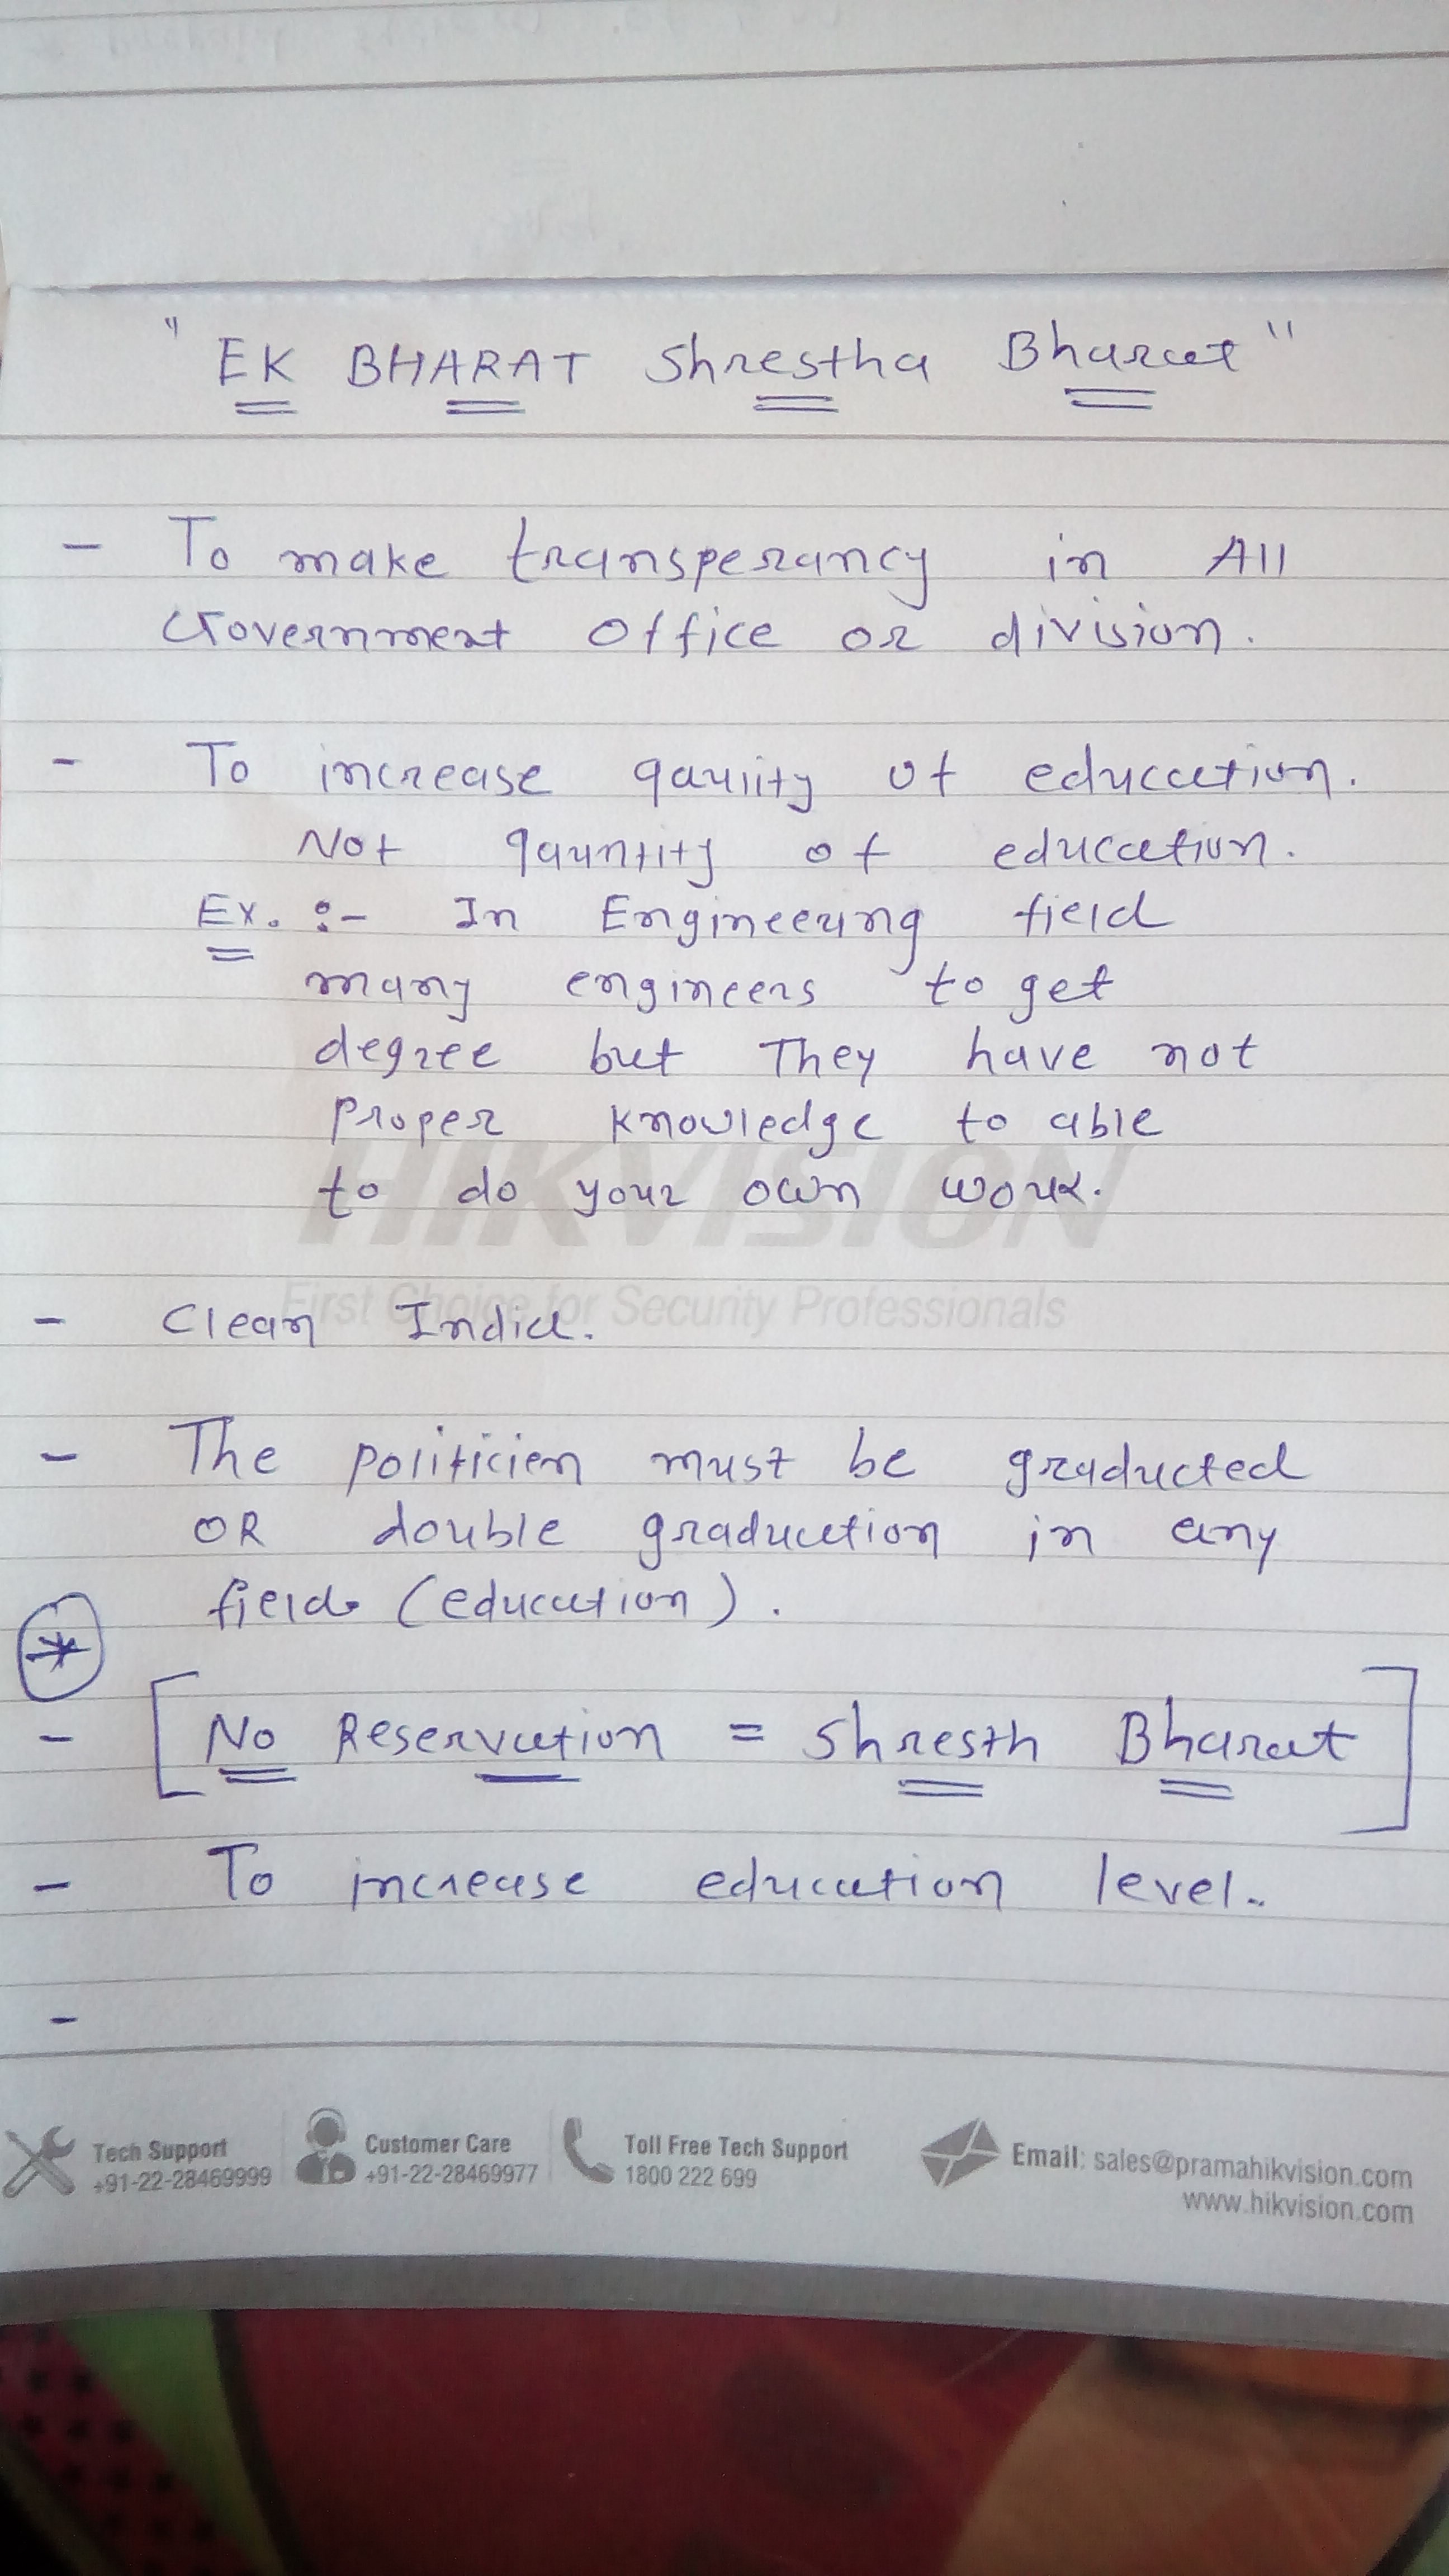 " EK BHARAT Shrestha Bharat "
- To make transperancy in All
Government office or division.
- To increase qaulity of education.
Not qauntity of education.
Ex. :- In Engineering field
many engineers to get
degree but They have not
proper knowledge to able
to do your own work.
HIKVISION
First Choice for Security Professionals
- Clean India.
- The politicien must be graducted
OR double graduation in any
field (education).
*
- [ No Reservation = Shresth Bharat ]
- To increase education level.
-
Tech Support
+91-22-28469999
Customer Care
+91-22-28469977
Toll Free Tech Support
1800 222 699
Email: sales@pramahikvision.com
www.hikvision.com